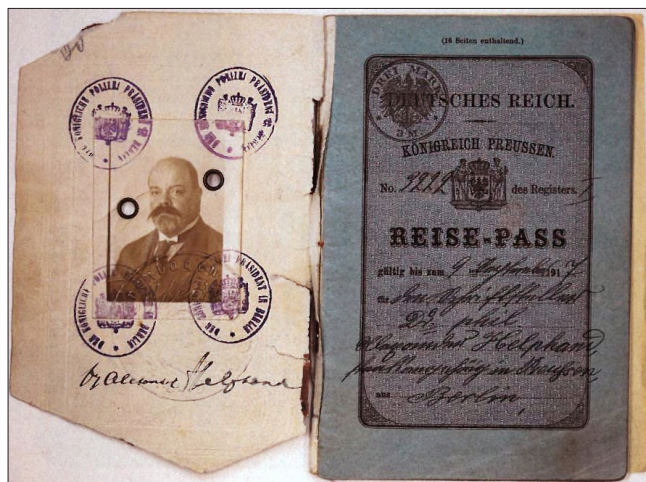 DER KÖNIGLICHE POLIZEI PRÄSIDENT IN BERLIN
DER KÖNIGLICHE POLIZEI PRÄSIDENT IN BERLIN
DER KÖNIGLICHE POLIZEI PRÄSIDENT IN BERLIN
DER KÖNIGLICHE POLIZEI PRÄSIDENT IN BERLIN
Helphand
(16 Seiten enthaltend.)
DREI MARK
3 M.
DEUTSCHES REICH.
KÖNIGREICH PREUSSEN.
No. des Registers.
REISE-PASS
gültig bis zum 9 1917
für den Schriftsteller
Dr phil
Helphand,
in Preussen,
aus Berlin,